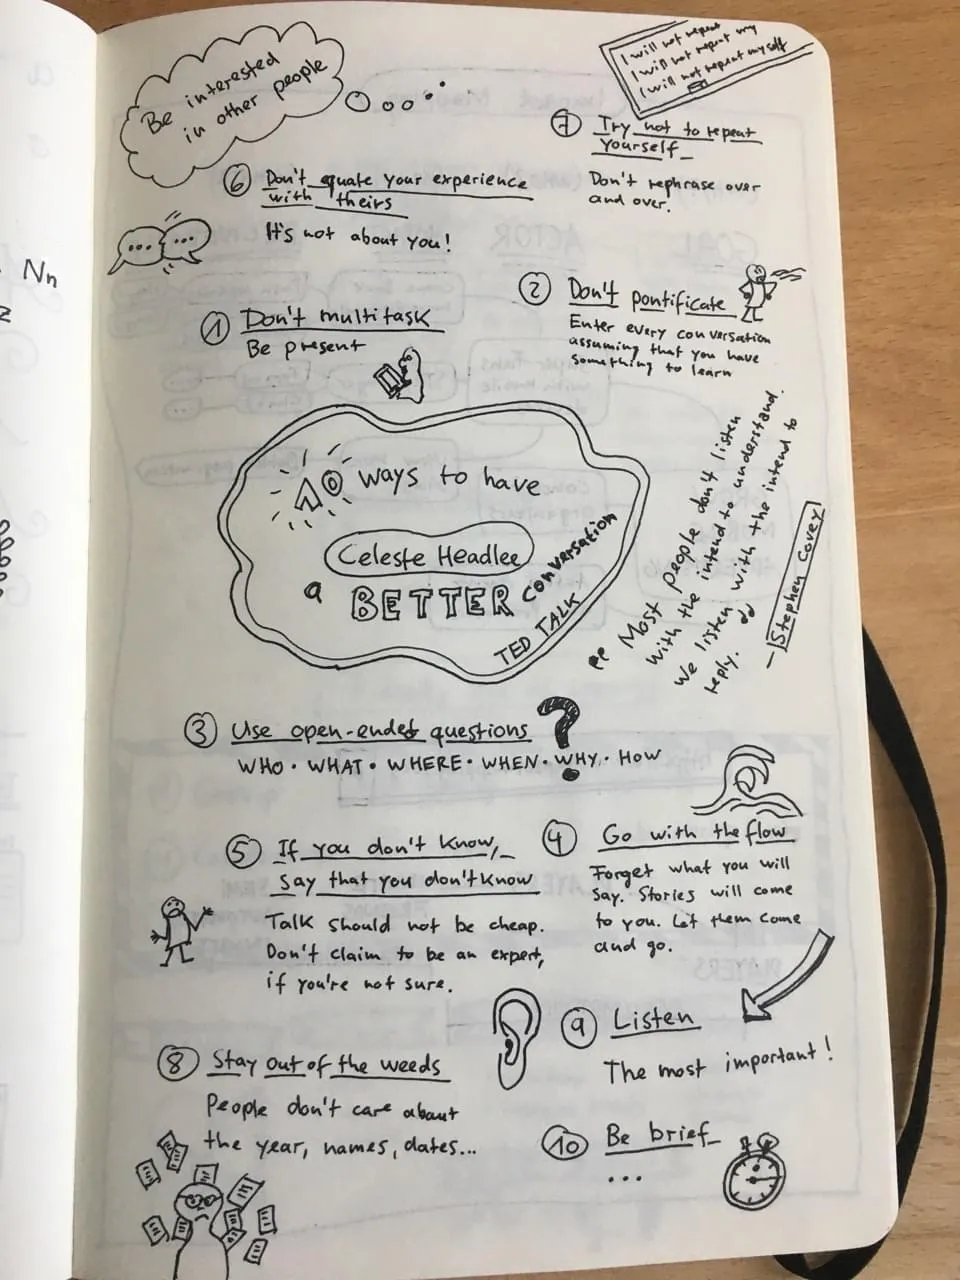 Be interested
in other people
I will not repeat
I will not repeat my
I will not repeat myself
7 Try not to repeat
yourself
Don't rephrase over
and over.
6 Don't equate your experience
with theirs
It's not about you!
Nn
2 Don't pontificate
Enter every conversation
assuming that you have
something to learn
1 Don't multitask
Be present
10 ways to have
Celeste Headlee
a BETTER conversation
TED TALK
"Most people don't listen
with the intend to understand.
We listen with the intend to
reply."
- Stephen Covey
3 Use open-ended questions ?
WHO · WHAT · WHERE · WHEN · WHY · HOW
5 If you don't know,
say that you don't know
Talk should not be cheap.
Don't claim to be an expert,
if you're not sure.
4 Go with the flow
Forget what you will
say. Stories will come
to you. Let them come
and go.
9 Listen
The most important!
8 Stay out of the weeds
People don't care about
the year, names, dates...
10 Be brief
...